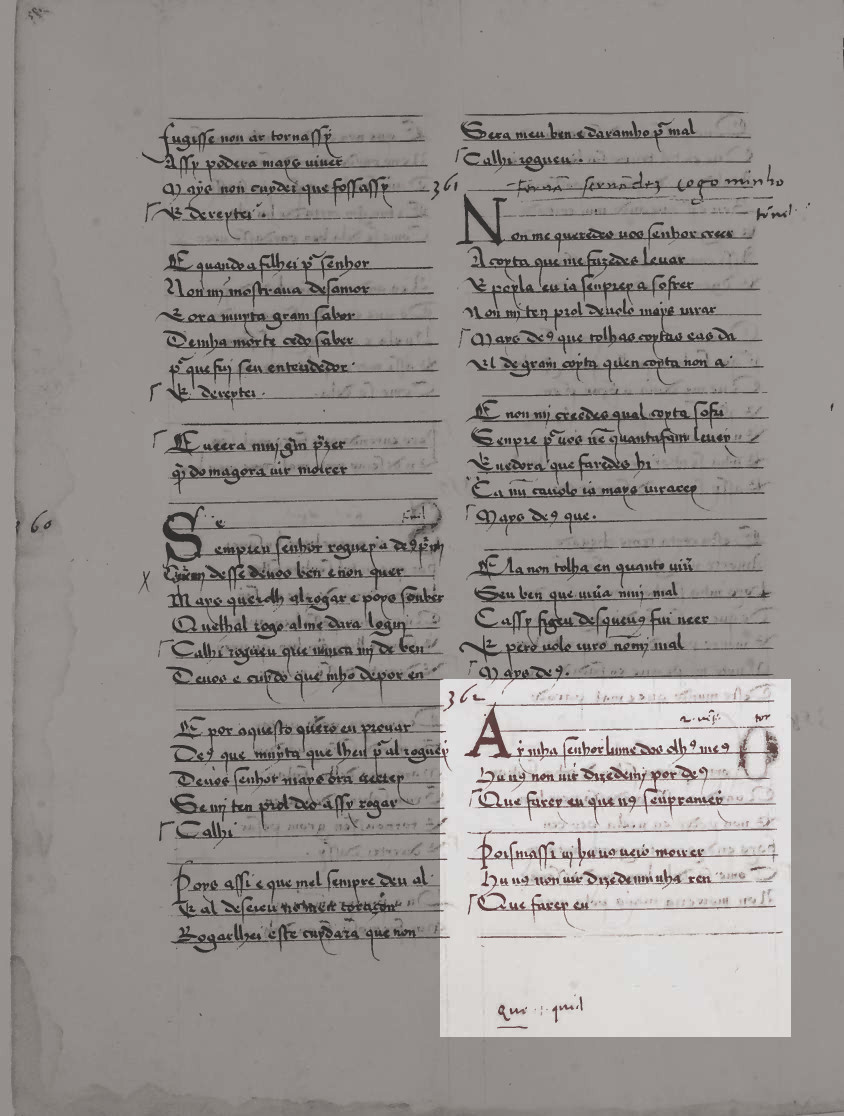 fugisse non ar tornassy
Assy podera mays viuer
Mays non cuydei que fossassy
E dereytei.
E quando a filhei p̃ senhor
Non mi mostraua desamor
E ora muyta gram sabor
De mha morte cedo saber
p̃ que fuj seu entendedor
E dereytei.
E ueera mui grã p̃zer
q̃ do magora uir morrer
360
Sempreu senhor roguey a de9
desse de uos ben e non quer
Mays querolh al rogar e poys souber
Quelhal rogo al me dara logu
Calhi rogueu que nunca mi de ben
De uos e cuydo que mho de por en
E por aquesto quero eu prouar
De9 que muyta que lheu p̃ al roguey
De uos senhor mays ora
Se mi ten prol deo assy rogar
Calhi
Poys assi e que mel sempre deu al
E al deseieu
Rogarlhei este cuydara que non
Sera meu ben e daramho p̃ mal
Calhi rogueu.
361
fernãdez cogominho
tornel
Non me queredes uos senhor creer
A coyta que me fazedes leuar
E poyla eu ia senprey a sofrer
Non mi ten prol de uolo mays iurar
Mays de9 que tolhas coytas eas da
Vl de gram coyta quen coyta non a
E non mi creedes qual coyta sofri
Senpre p̃ uos nẽ quantafam leuey
E uedora que faredes hi
Ca nũ ca uolo ia mays iurarey
Mays de9 que.
Ela non tolha en quanto uiũ
Seu ben que uiua mui mal
Cassy figeu desqueu9 fui ueer
E pero uolo iuro nõmi ual
Mays de9.
362
tor
Ay mha senhor lume dos olh9 me9
Hu u9 non uir dizedemj por de9
Que farey eu que u9 senpramey
Poismassi uj hu uo ueio morrer
Hu u9 non uir dizedemi unha ren
Que farey eu